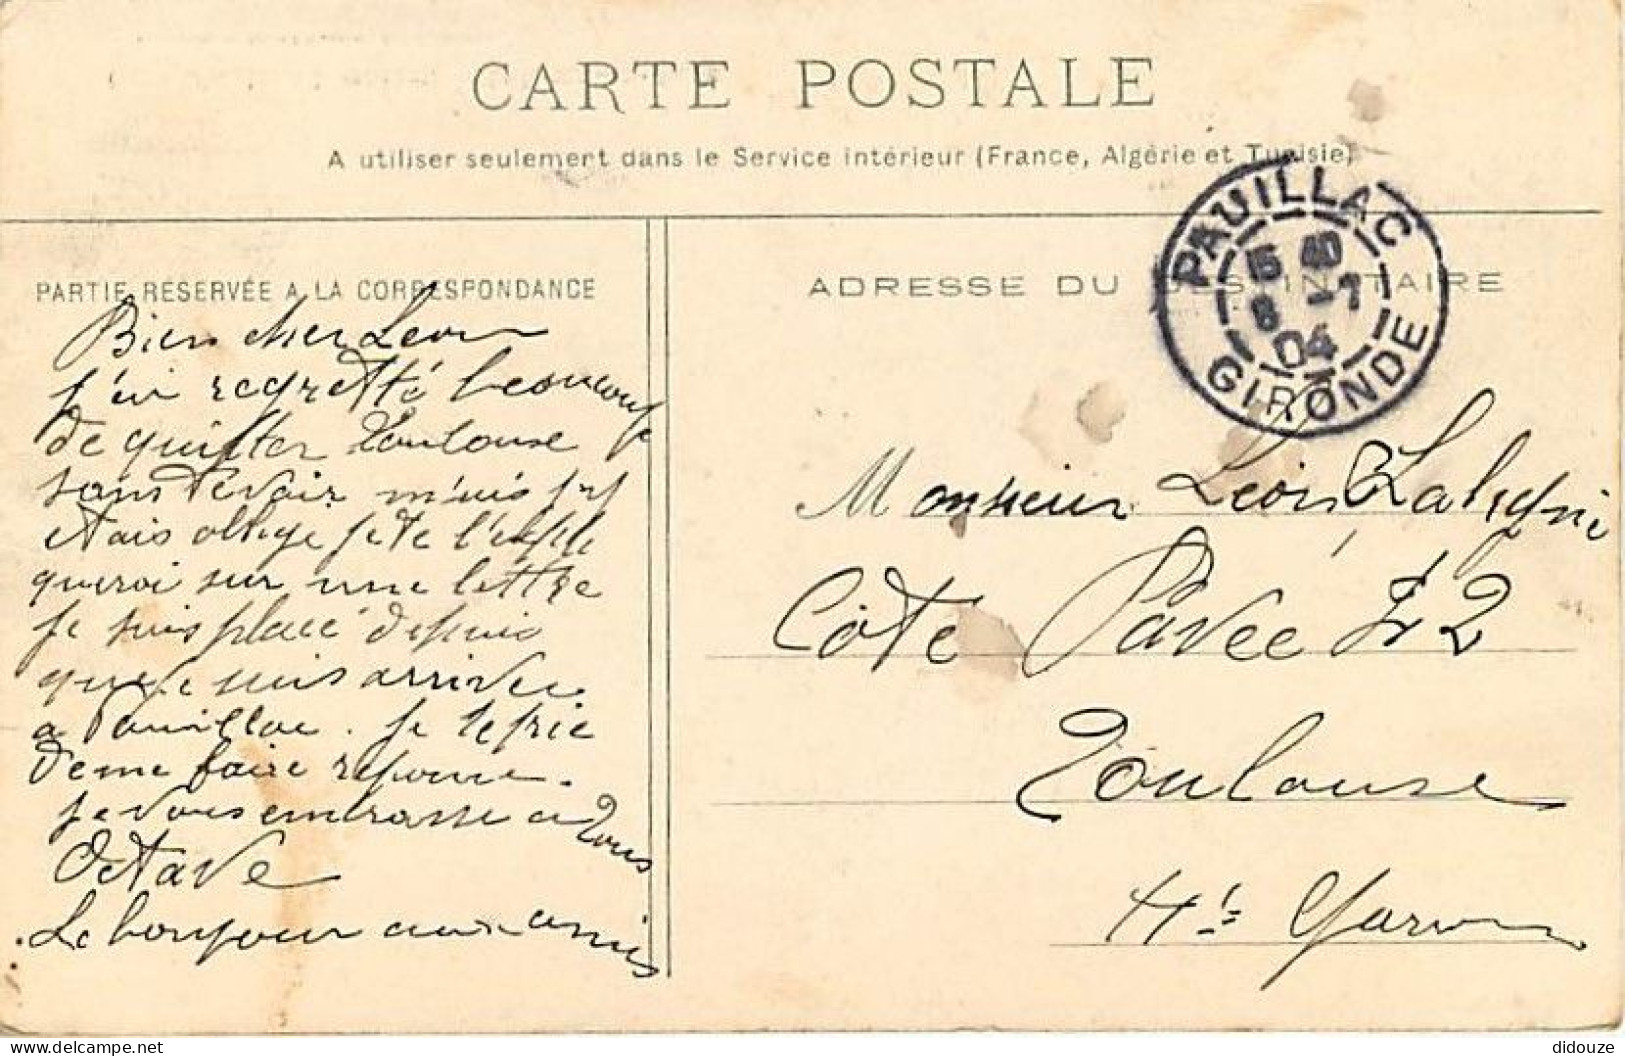 CARTE POSTALE
A utiliser seulement dans le Service intérieur (France, Algérie et Tunisie)
PAUILLAC
15 40
8 -7
04
GIRONDE
PARTIE RÉSERVÉE A LA CORRESPONDANCE
Bien cher Leon
j'ai regretté beaucoup
de quitter Toulouse
sans te voir mais je
etais oblige je te l'
querai sur une lettre
je suis place depuis
que je suis arriver
a Pauillac. je te prie
de me faire reponse.
je vous embrasse a Tous
Octave
Le bonjour aux amis
ADRESSE DU DESTINATAIRE
Monsieur Léon
Côte Pavée 42
Toulouse
Hte Garonne
delcampe.net
didouze